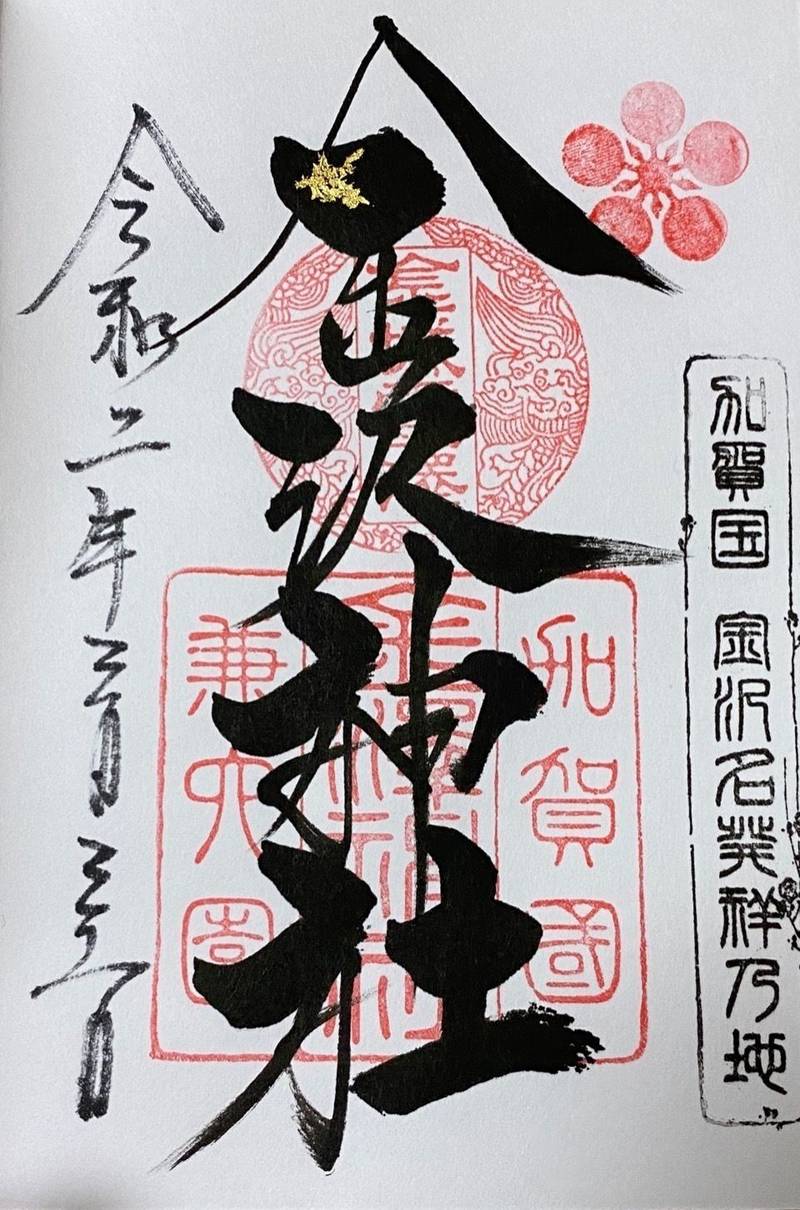 加賀国 金沢名発祥乃地
金沢神社
加賀國
金澤神社
兼六園
令和二年